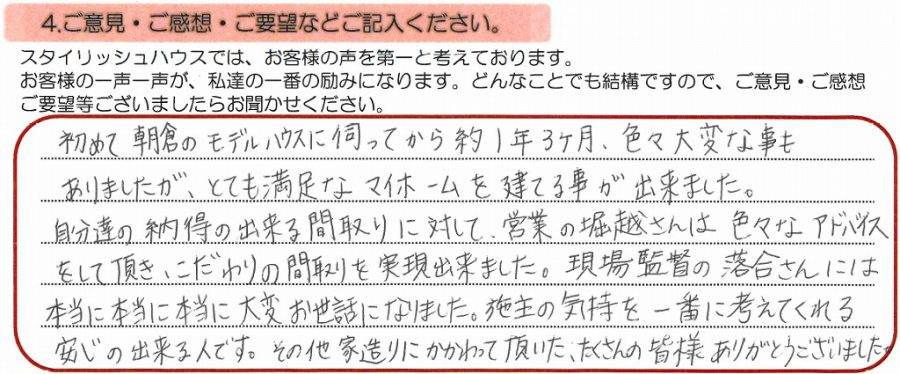 4.ご意見・ご感想・ご要望などご記入ください。
スタイリッシュハウスでは、お客様の声を第一と考えております。
お客様の一声一声が、私達の一番の励みになります。どんなことでも結構ですので、ご意見・ご感想
ご要望等ございましたらお聞かせください。
初めて朝倉のモデルハウスに伺ってから約1年3ヶ月、色々大変な事も
ありましたが、とても満足なマイホームを建てる事が出来ました。
自分達の納得の出来る間取りに対して、営業の堀越さんは色々なアドバイス
をして頂き、こだわりの間取りを実現出来ました。現場監督の落合さんには
本当に本当に本当に大変お世話になりました。施主の気持を一番に考えてくれる
安心の出来る人です。その他家造りにかかわって頂いた、たくさんの皆様ありがとうございました。